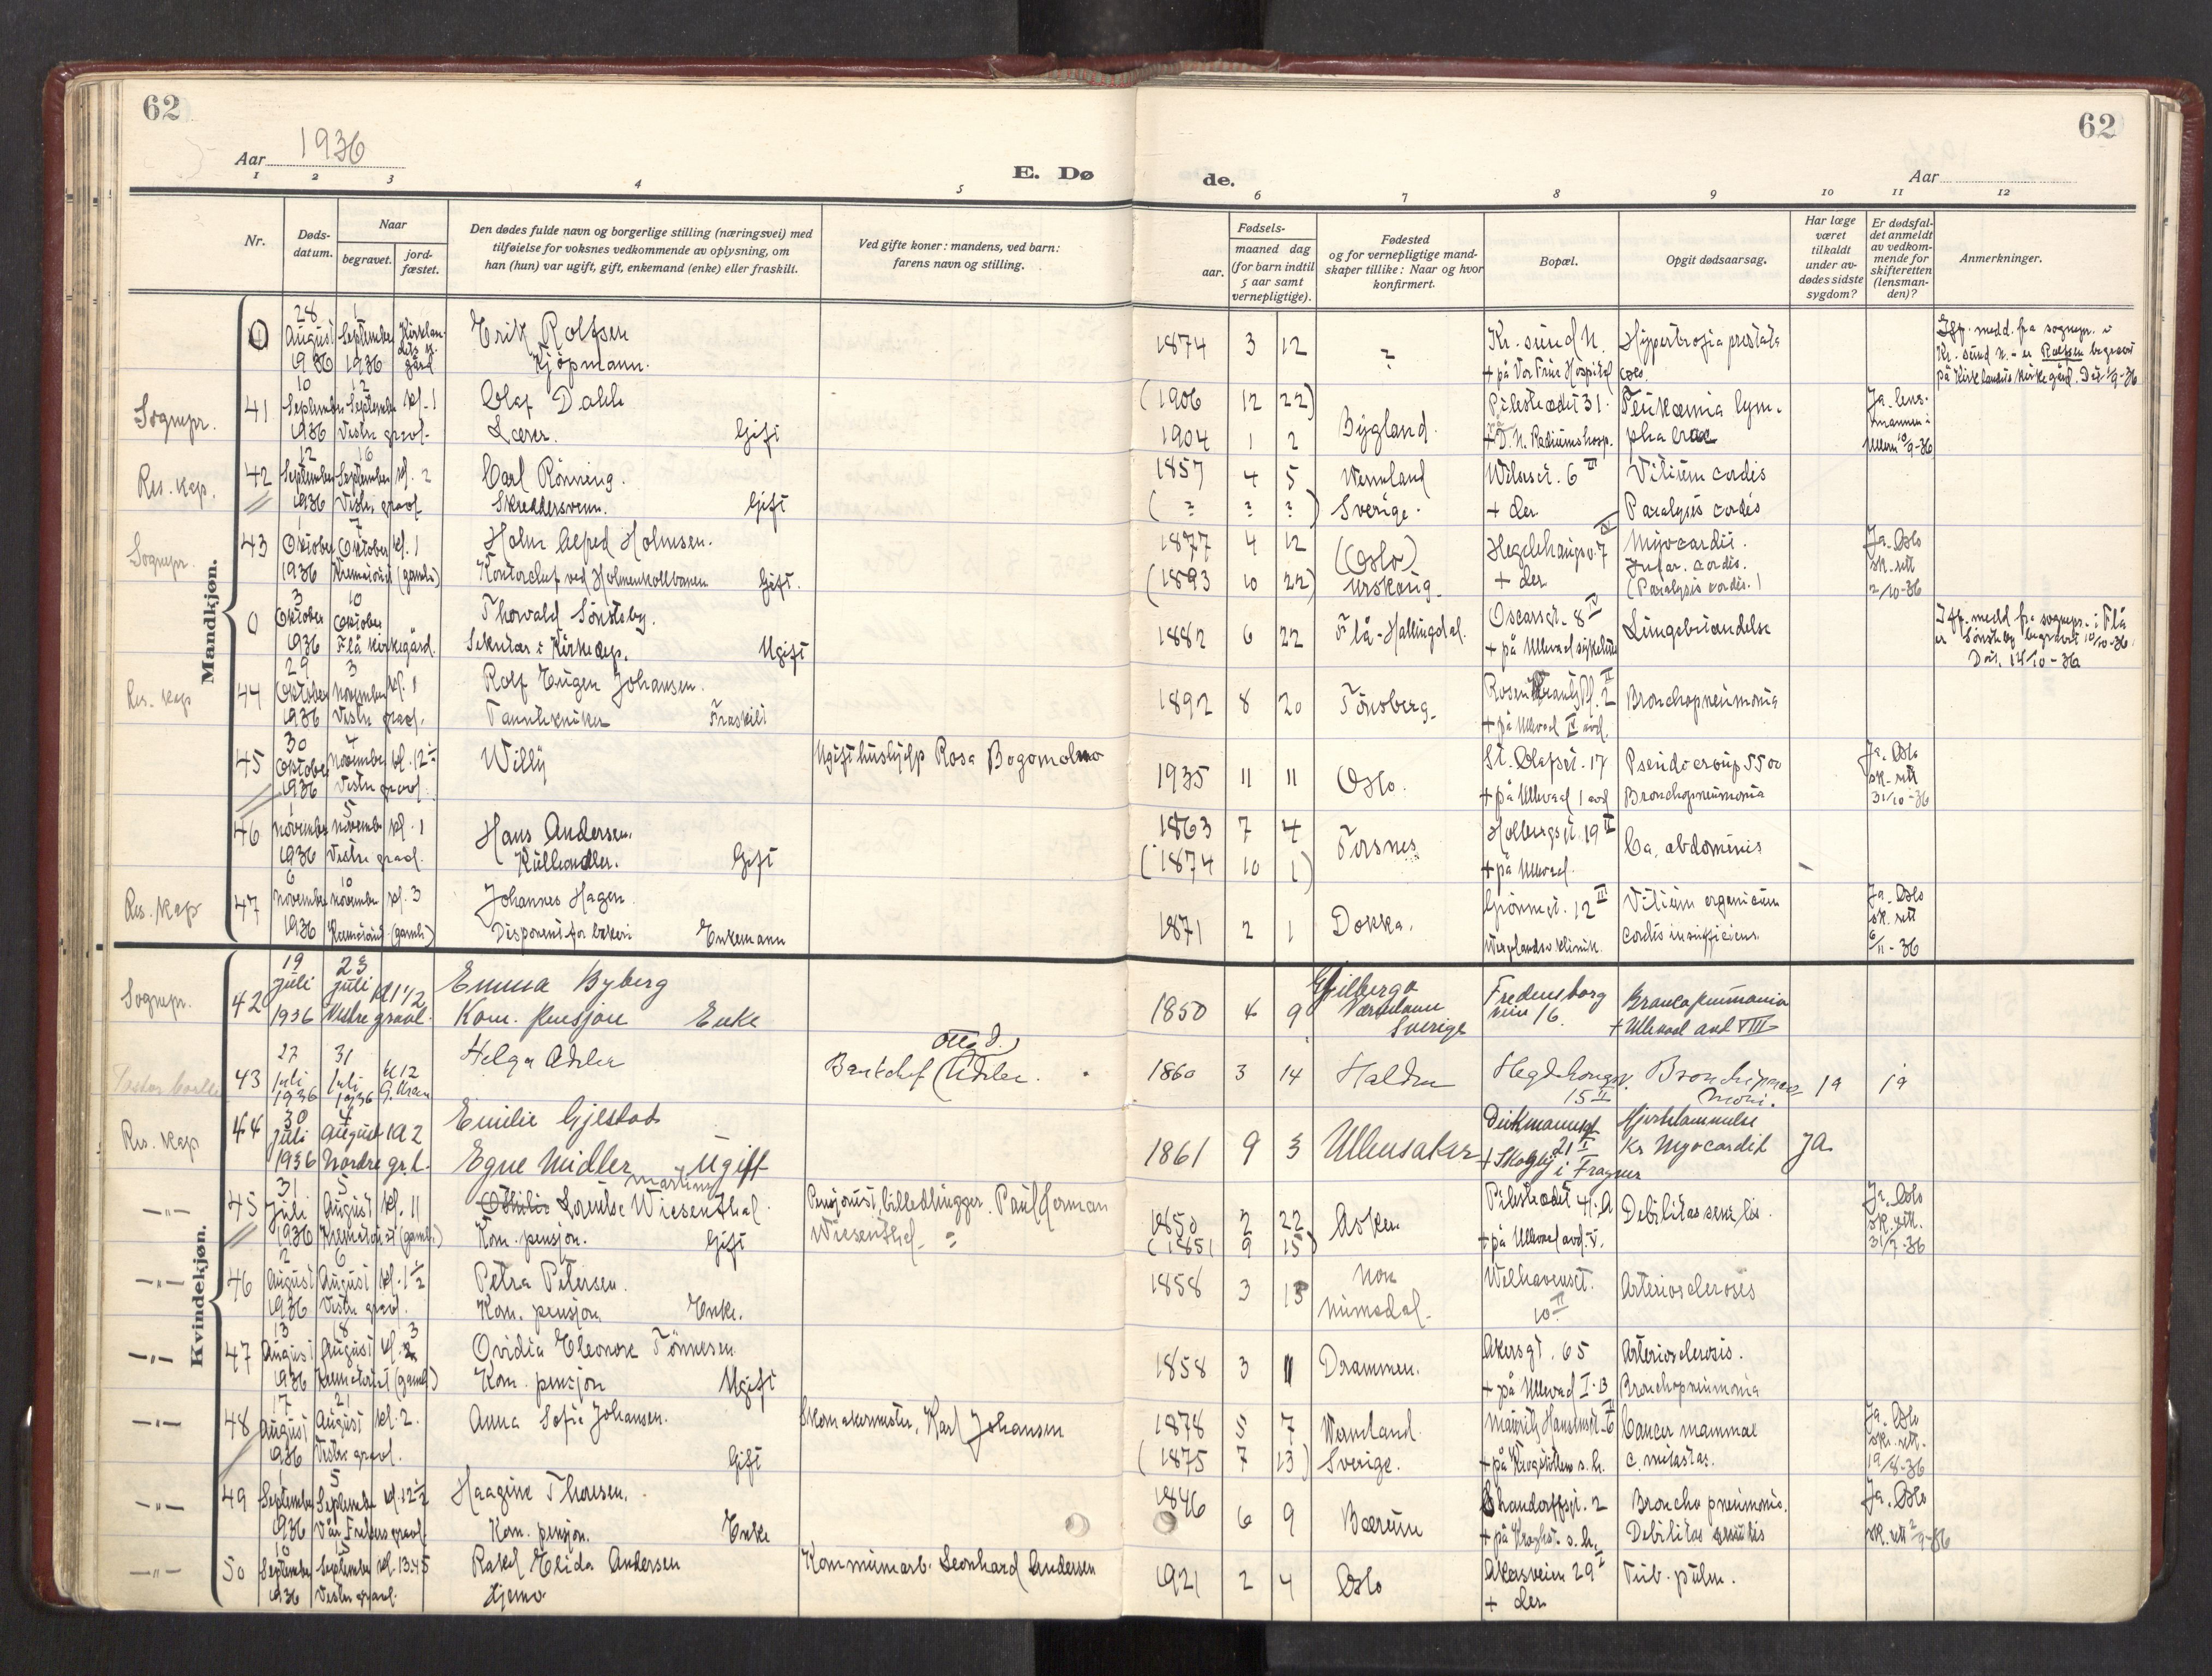 62
62
Aar 1936
E. Dø
de.
Aar
1 2 3 4 5 6 7 8 9 10 11 12
Nr.
Døds-
datum.
Naar
begravet.
jord-
fæstet.
Den dødes fulde navn og borgerlige stilling (næringsvei) med
tilføielse for voksnes vedkommende av oplysning, om
han (hun) var ugift, gift, enkemand (enke) eller fraskilt.
Ved gifte koner: mandens, ved barn:
farens navn og stilling.
Fødsels-
aar.
maaned dag
(for barn indtil
5 aar samt
vernepligtige).
Fødested
og for vernepligtige mand-
skaper tillike: Naar og hvor
konfirmert.
Bopæl.
Opgit dødsaarsag.
Har læge
været
tilkaldt
under av-
dødes sidste
sygdom?
Er dødsfal-
det anmeldt
av vedkom-
mende for
skifteretten
(lensman-
den)?
Anmerkninger.
Mandkjøn.
28
August
1936
1
September
1936
Erik Rolfsen
Kjöpmann.
1874 3 12
Kr. sund N.
+ på Vor Frue Hospital Oslo.
Hypertrofia prostata
Iflg. medd. fra sognepr. i
Kr. sund N. - er Rolfsen begravet
på Kirklandets kirkegård. Det 1/9-36
Sognepr.
41
10
September
1936
12
September
kl. 1
Vestre gravl.
Olaf Dahl
Lærer. Gift
(1906 12 22)
1904 1 2
Bygland.
Pilestredet 31.
+ D. N. Radiumshosp.
Ja. lens-
mannen i
Ullern 10/9-36
Res. kap.
42
12
September
1936
16
September
kl. 2
Vestre gravl.
Carl Rönning.
Skreddersvenn. Gift
1857 4 5
( ? ? ? )
Wermland
Sverige.
6 III
+ der
Vitium cordis
Paralysis cordis
Sognepr.
43
1
Oktober
1936
7
Oktober
kl. 1
Krematoriet (gamle)
Holm Alfred Holmsen.
Kontorchef ved Holmenkollbanen Gift.
1877 4 12
(1893 10 22)
(Oslo)
Urskoug.
Hegdehaugsv. 7
+ der
Myocardit.
Infar. cordis.
(Paralysis cordis.)
Ja. Oslo
sk. rett
2/10-36
0
3
Oktober
1936
10
Oktober
Flå kirkegård.
Thorvald Sönsteby.
Sekretær i Kirkedep. Ugift
1882 6 22
Flå - Hallingdal.
Oscarsgt. 8 IV
+ på Ullevål sykehus
Lungebetendelse
Iflg. medd. fra sognepr. i Flå
er Sönsteby begravet 10/10-36.
Det. 14/10-36
Res. kap
44
29
Oktober
1936
3
November
kl. 1
Vestre gravl.
Rolf Eugen Johansen.
Tanntekniker Fraskilt
1892 8 20
Tönsberg.
Rosenkrantzgt. 2 II
+ på Ullevål IV avd.
Bronchopneumonia
45
30
Oktober
1936
4
November
kl. 12 1/2
Vestre gravl.
Willy
Ugift hushjelp Rosa Bogomolno
1935 11 11
Oslo.
St. Olafsgt. 17
+ på Ullevål 1 avd
Pseudocroup 5500
Bronchopneumonia
Ja. Oslo
sk. rett
31/10-36
46
1
November
1936
5
November
kl. 1
Vestre gravl.
Hans Andersen.
Kullhandler. Gift
1863 7 4
(1874 10 1)
Torsnes
Holbergsgt. 19 II
+ på Ullevål.
Ca. abdominis
Res. kap
47
6
November
1936
10
November
kl. 3
Krematoriet (gamle)
Johannes Hagen.
Disponent for bakeri Enkemann
1871 2 1
Dokka.
Grönnegt. 12 III
Vitium organicum
cordis insufficiens.
Ja. Oslo
sk. rett
6/11-36
Kvindekjøn.
Sognepr.
42
19
juli
1936
23
juli
kl 1 1/2
Vestre gravl.
Emma Byberg
Kom. pensjon Enke
1850 4 9
Sverige
Fredensborg
veien 16.
+ Ullevål avd VIII
43
27
juli
1936
31
juli
1936
kl 12
G. Krem
Helga Adler
Otto J.
Bankchef (Adler.
1860 3 14
Halden
15 II
ja
ja
Res. kap
44
30
juli
1936
4
August
kl 2
Nordre gr.l.
Emilie Gjestad
Egne Midler Ugift
1861 9 3
Ullensaker
21 I
Hjertelammelse
Kr Myocardit
Ja
— „ —
45
31
Juli
1936
5
August
kl. 11
Krematoriet (gamle)
Martine
Othilie Lorentse Wiesenthal.
Kom. pensjon. Gift
Pensjonist, billedhugger. Paul Herman
Wiesenthal
1850 2 22
(1851 9 15)
Asker
Pilestredet 41. A
+ på Ullevål avd. V.
Debilitas senilis.
Ja. Oslo
sk. rett.
31/7-36
— „ —
46
2
August
1936
6
August
kl. 1 1/2
Vestre gravl.
Petra Petersen.
Kom. pensjon Enke.
1858 3 13
Numedal.
Welhavensgt.
10 II
Arteriosclerosis
— „ —
47
13
August
1936
18
August
kl. 3
Krematoriet (gamle)
Ovidia Eleonore Tönnesen
Kom. pensjon Ugift
1858 3 11
Drammen.
Akersgt. 65
+ på Ullevål I. B
Arteriosclerosis.
Bronchopneumonia
— „ —
48
17
August
1936
21
August
kl. 2.
Vestre gravl.
Anna Sofie Johansen.
Gift
Skomakermester, Karl Johansen
1878 5 7
(1875 7 13)
Wermland
Sverige.
+ på Krogstöttens s. h.
Cancer mammae
c. metastas.
Ja. Oslo
sk. rett.
19/8-36
— „ —
49
1
September
1936
5
September
kl. 12 1/2
Vår Frelsers gravl.
Haagine Thoresen.
Kom. pensjon. Enke
1846 6 9
Bærum
2
+ på Kroghst. s. h.
Broncho pneumonia.
Debilitas senilis
Ja. Oslo
sk. rett 2/9-36
— „ —
50
10
September
1936
15
September
kl. 13.45
Vestre gravl.
Rakel Elida Andersen
hjemme
Kommunearb. Leonhard Andersen
1921 2 4
Oslo
Akersveien 29 I
+ der
Tub. pulm.